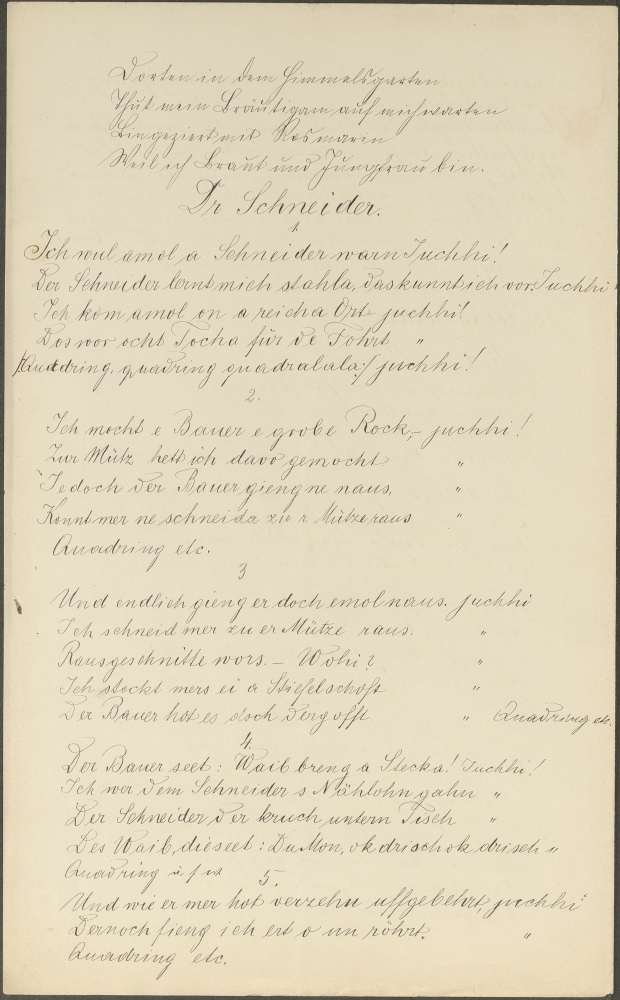 Dorten in dem Himmelsgarten
Thut mein Bräutigam auf mich warten
Eingeziert mit Rosmarin
Weil ich Braut und Jungfrau bin.
Dr Schneider.
1
Ich wul amol a Schneider warn Juchhi!
Der Schneider lernt mich stahla, das kunnt ich vor: Juchhi!
Ich kom amol on a reicha Ort juchhi!
Dos wor ocht Tocha für de Fohrt "
/: Quadring, quadring quadralala :/ juchhi!
2.
Ich mocht e Bauer e grobe Rock, – juchhi!
Zur Mütz hett ich davo gemocht "
Jedoch der Bauer gieng ne naus, "
Konnt mer ne schneida zu r Mütze raus "
Quadring etc.
3
Und endlich gieng er doch emol naus. juchhi
Ich schneid mer zu er Mütze raus. "
Rausgeschnitte wors. – Wohi? "
Ich stockt mers ei a Stiefelschoft "
Der Bauer hot es doch dergofft " Quadring etc.
4.
Der Bauer seet: Waib breng a Stecka! Juchhi!
Ich wer dem Schneider s Nählohn gahn "
Der Schneider der kruch untern Tisch "
Des Waib, die seet: Du Mon, ok drisch ok drisch "
Quadring u s w
5.
Und wie er mer hot verzehn uffgebehrt, juchhi
Dernoch fieng ich ert o un röhrt. "
Quadring etc.